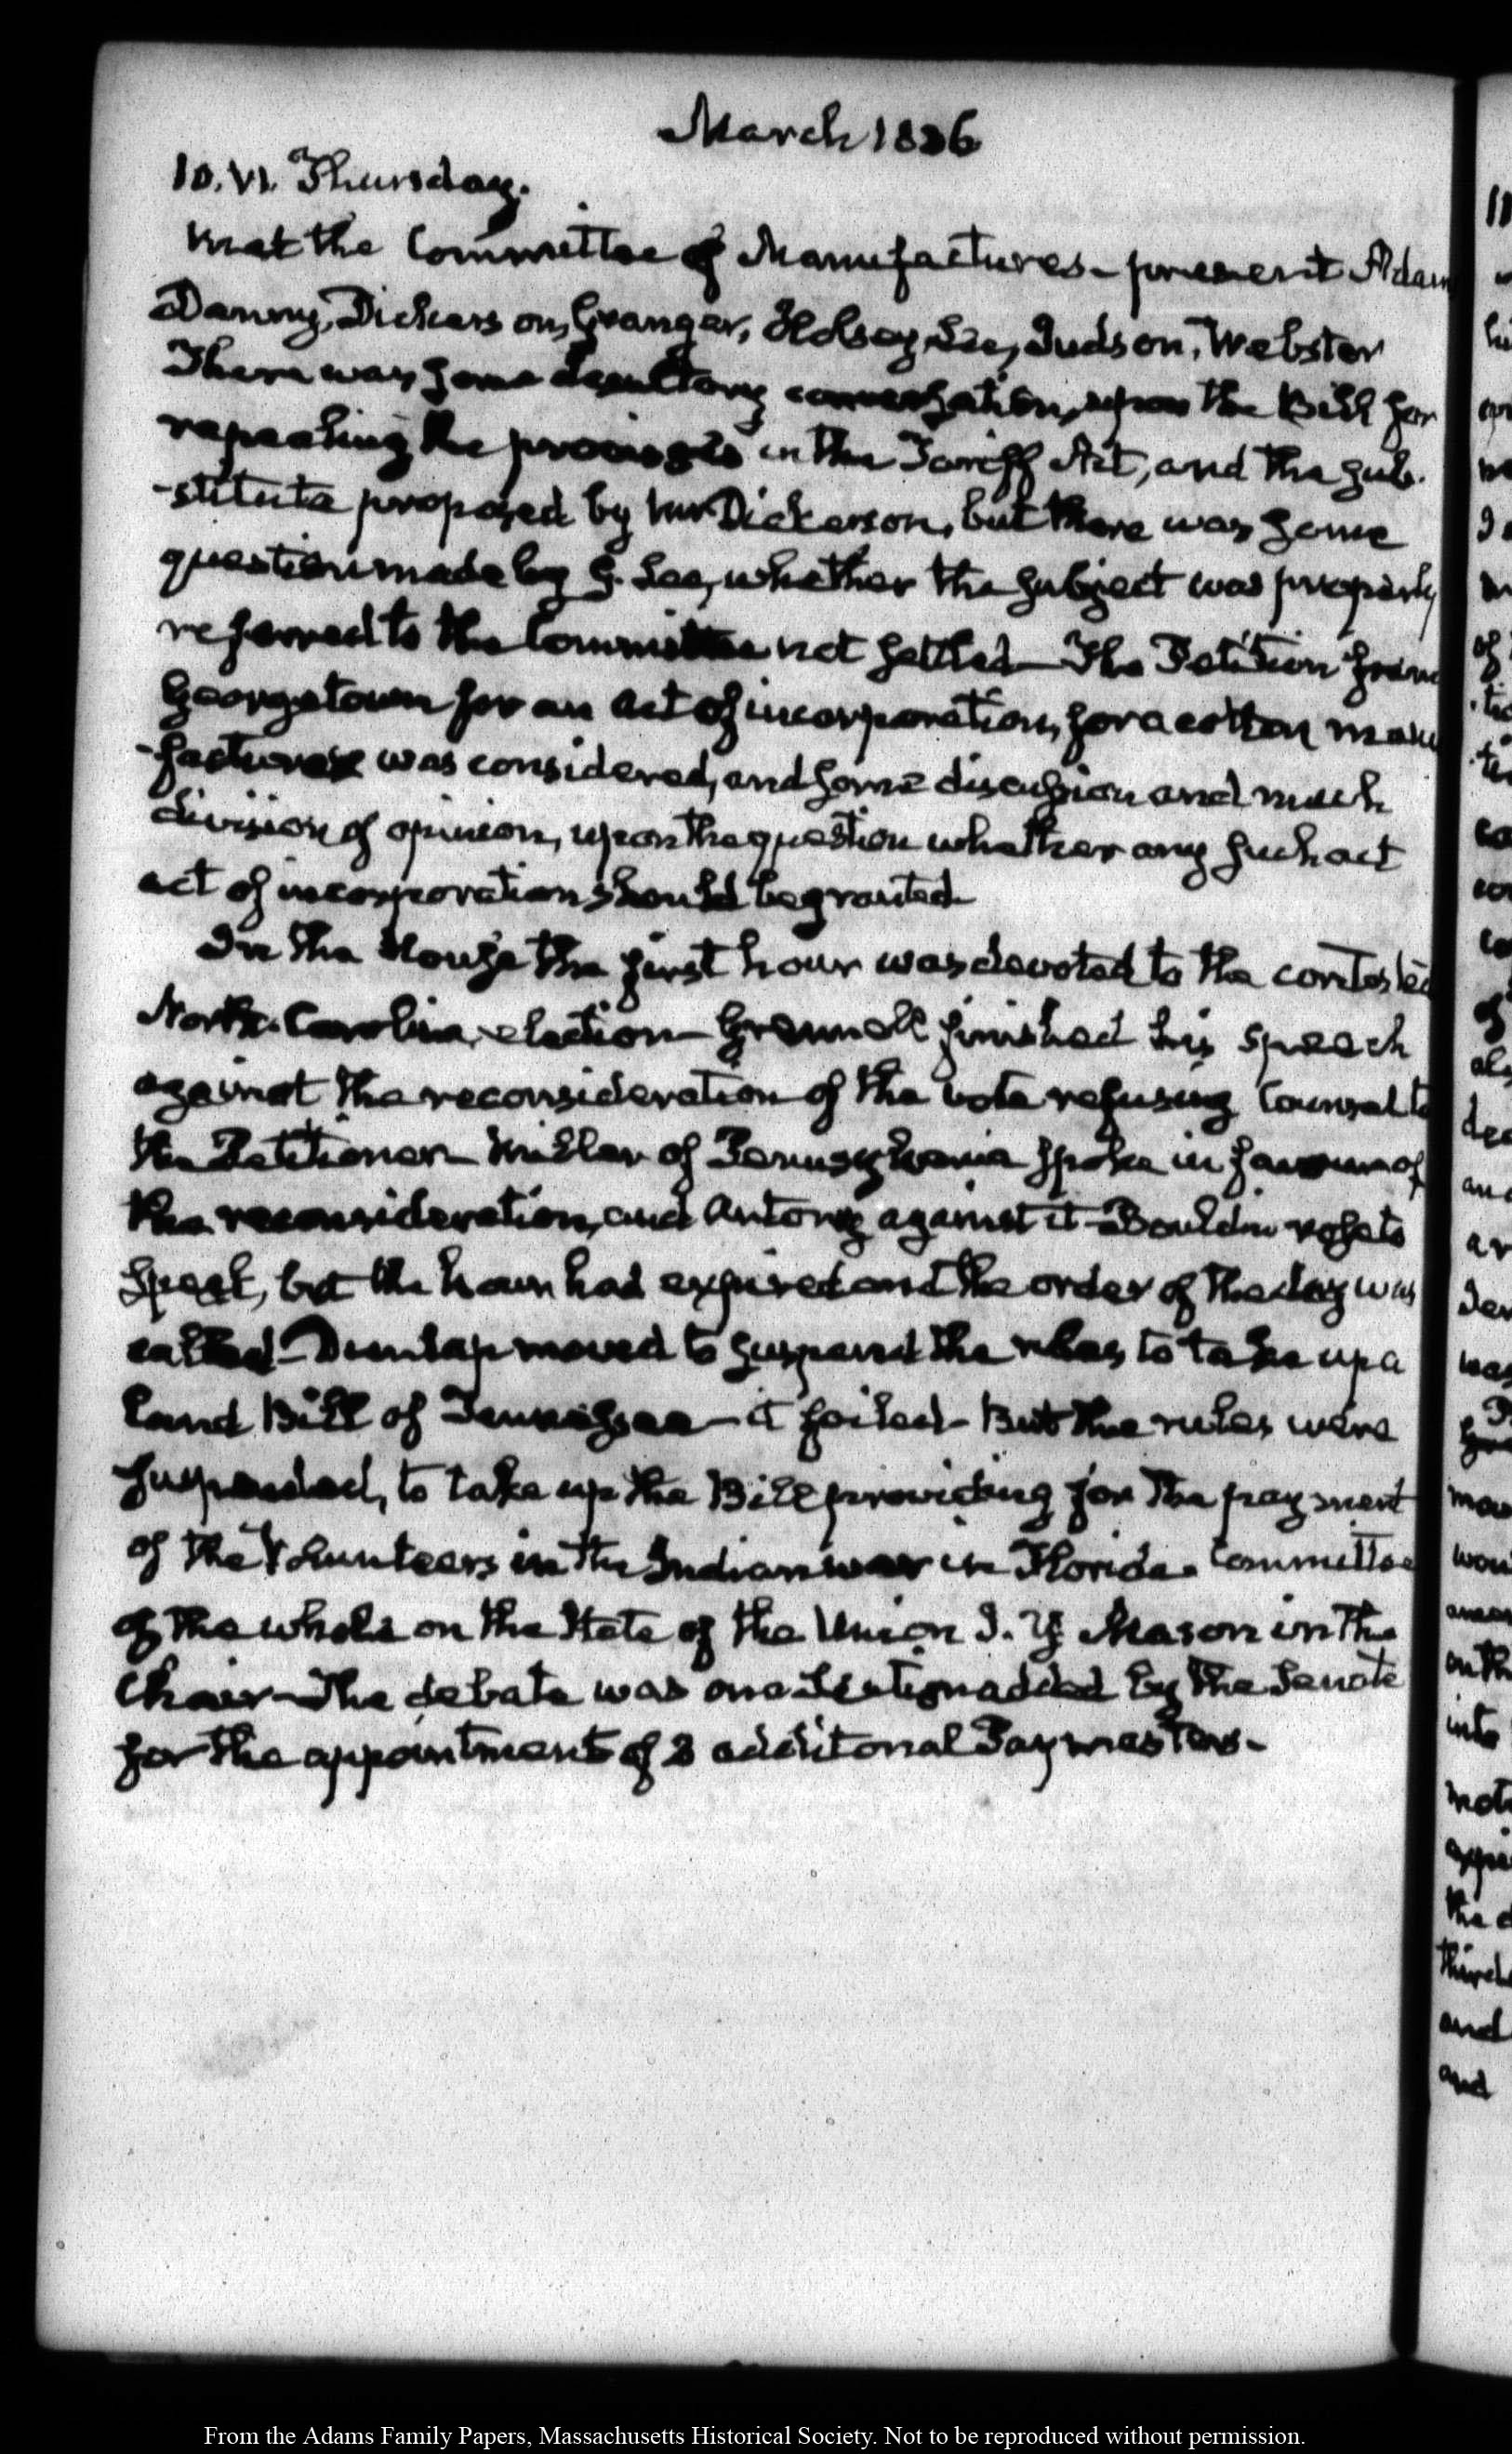 March 1836
10. VI. Thursday.
Met the Committee of Manufactures – present Adam
Denny, Dickerson, Granger, Holsey, Lee, Judson, Webster
There was some desultory conversation, upon the Bill for
repealing the provisos in the Tariff Act, and the sub-
-stitute proposed by Mr Dickerson, but there was some
question made by G. Lee, whether the subject was properly
referred to the Committee not settled – The Petition from
Georgetown for an act of incorporation, for a cotton manu
-facture was considered, and some discussion and much
division of opinion, upon the question whether any such act
act of incorporation should be granted –
In the House the first hour was devoted to the contested
North-Carolina election – Grennell finished his speech
against the reconsideration of the vote refusing Counsel to
the Petitioner – Miller of Pennsylvania spoke in favour of
the reconsideration, and Antony against it – Bouldin rose to
speak, but the hour had expired and the order of the day was
called – Dunlap moved to suspend the rules, to take up a
Land Bill of Tennessee – it failed – But the rules were
suspended, to take up the Bill providing for the payment
of the Volunteers in the Indian war in Florida. Committee
of the whole on the State of the Union J. Y. Mason in the
Chair – The debate was on a Section added by the Senate
for the appointment of 3 additonal Paymasters –
From the Adams Family Papers, Massachusetts Historical Society. Not to be reproduced without permission.